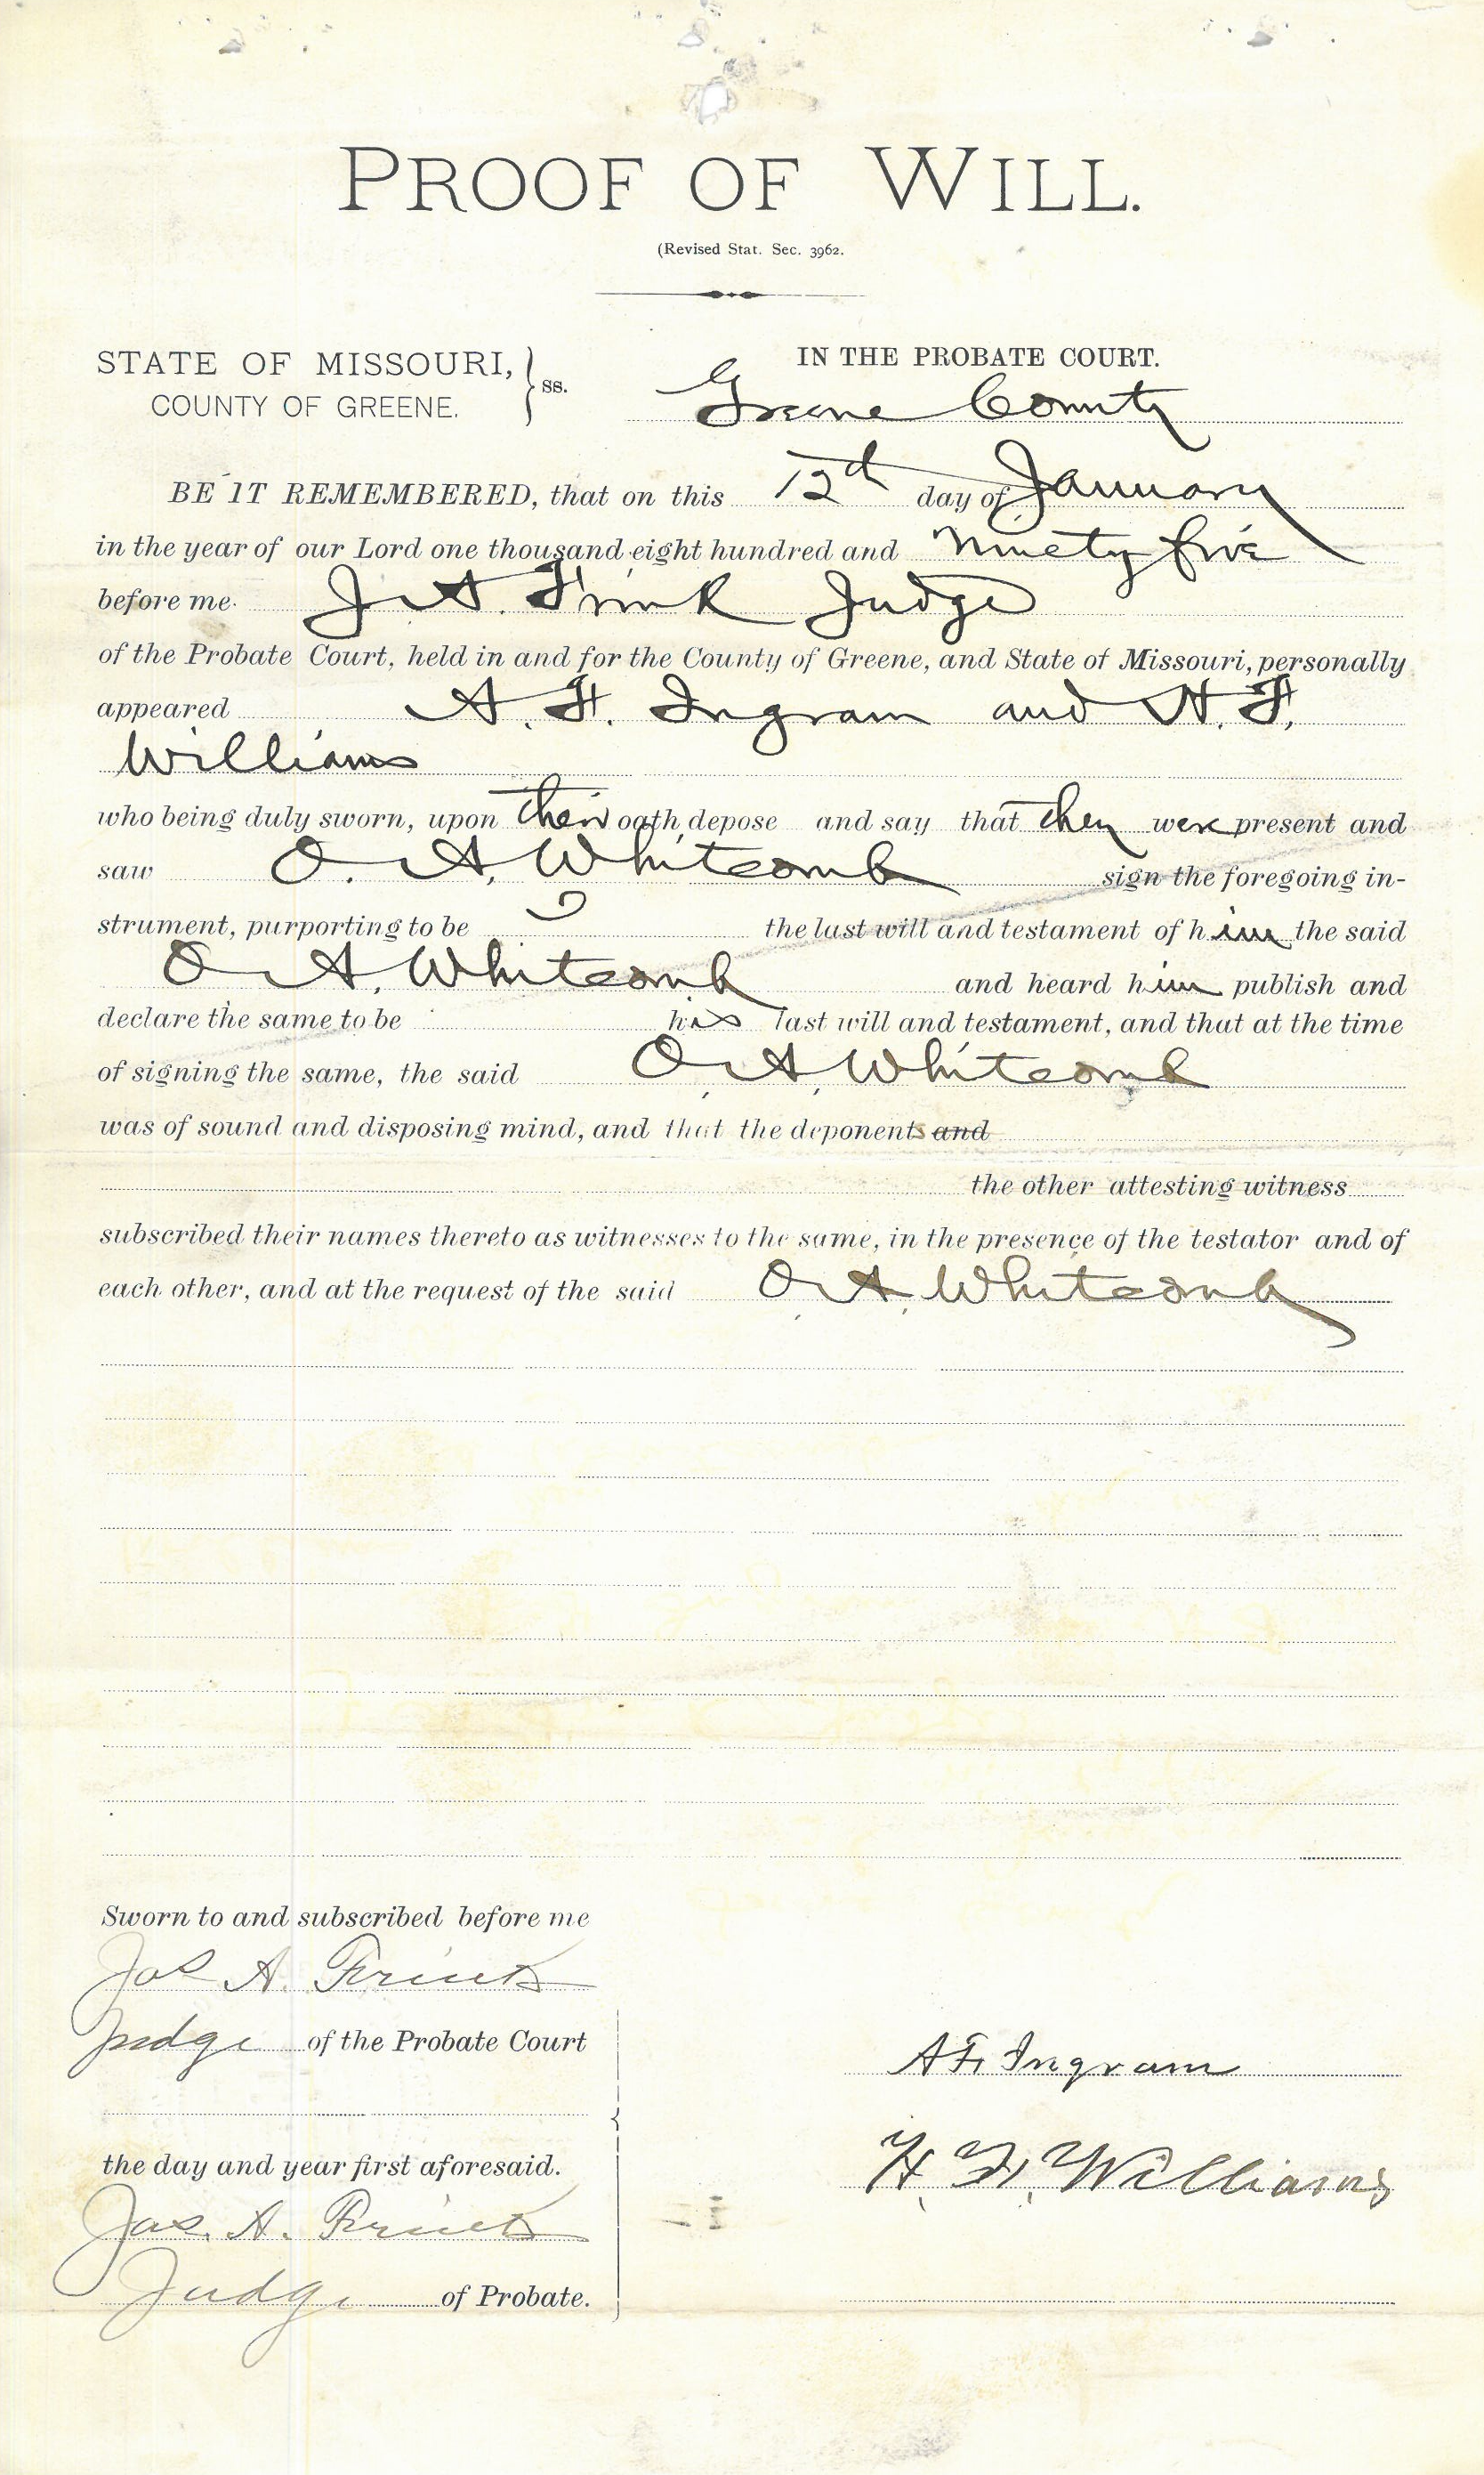 PROOF OF WILL.
(Revised Stat. Sec. 3962.
STATE OF MISSOURI, } ss.
COUNTY OF GREENE.
IN THE PROBATE COURT.
Greene County
BE IT REMEMBERED, that on this 12th day of January
in the year of our Lord one thousand eight hundred and Ninety five
before me J. A. Frink Judge
of the Probate Court, held in and for the County of Greene, and State of Missouri, personally
appeared A. F. Ingram and H. F.
Williams
who being duly sworn, upon their oath, depose and say that they were present and
saw O. A. Whitcomb sign the foregoing in-
strument, purporting to be the last will and testament of him the said
O. A. Whitcomb and heard him publish and
declare the same to be his last will and testament, and that at the time
of signing the same, the said O. A. Whitcomb
was of sound and disposing mind, and that the deponents and
the other attesting witness
subscribed their names thereto as witnesses to the same, in the presence of the testator and of
each other, and at the request of the said O. A. Whitcomb
Sworn to and subscribed before me
Jas A. Frink
Judge of the Probate Court
the day and year first aforesaid.
Jas. A. Frink
Judge of Probate.
A F. Ingram
H. F. Williams